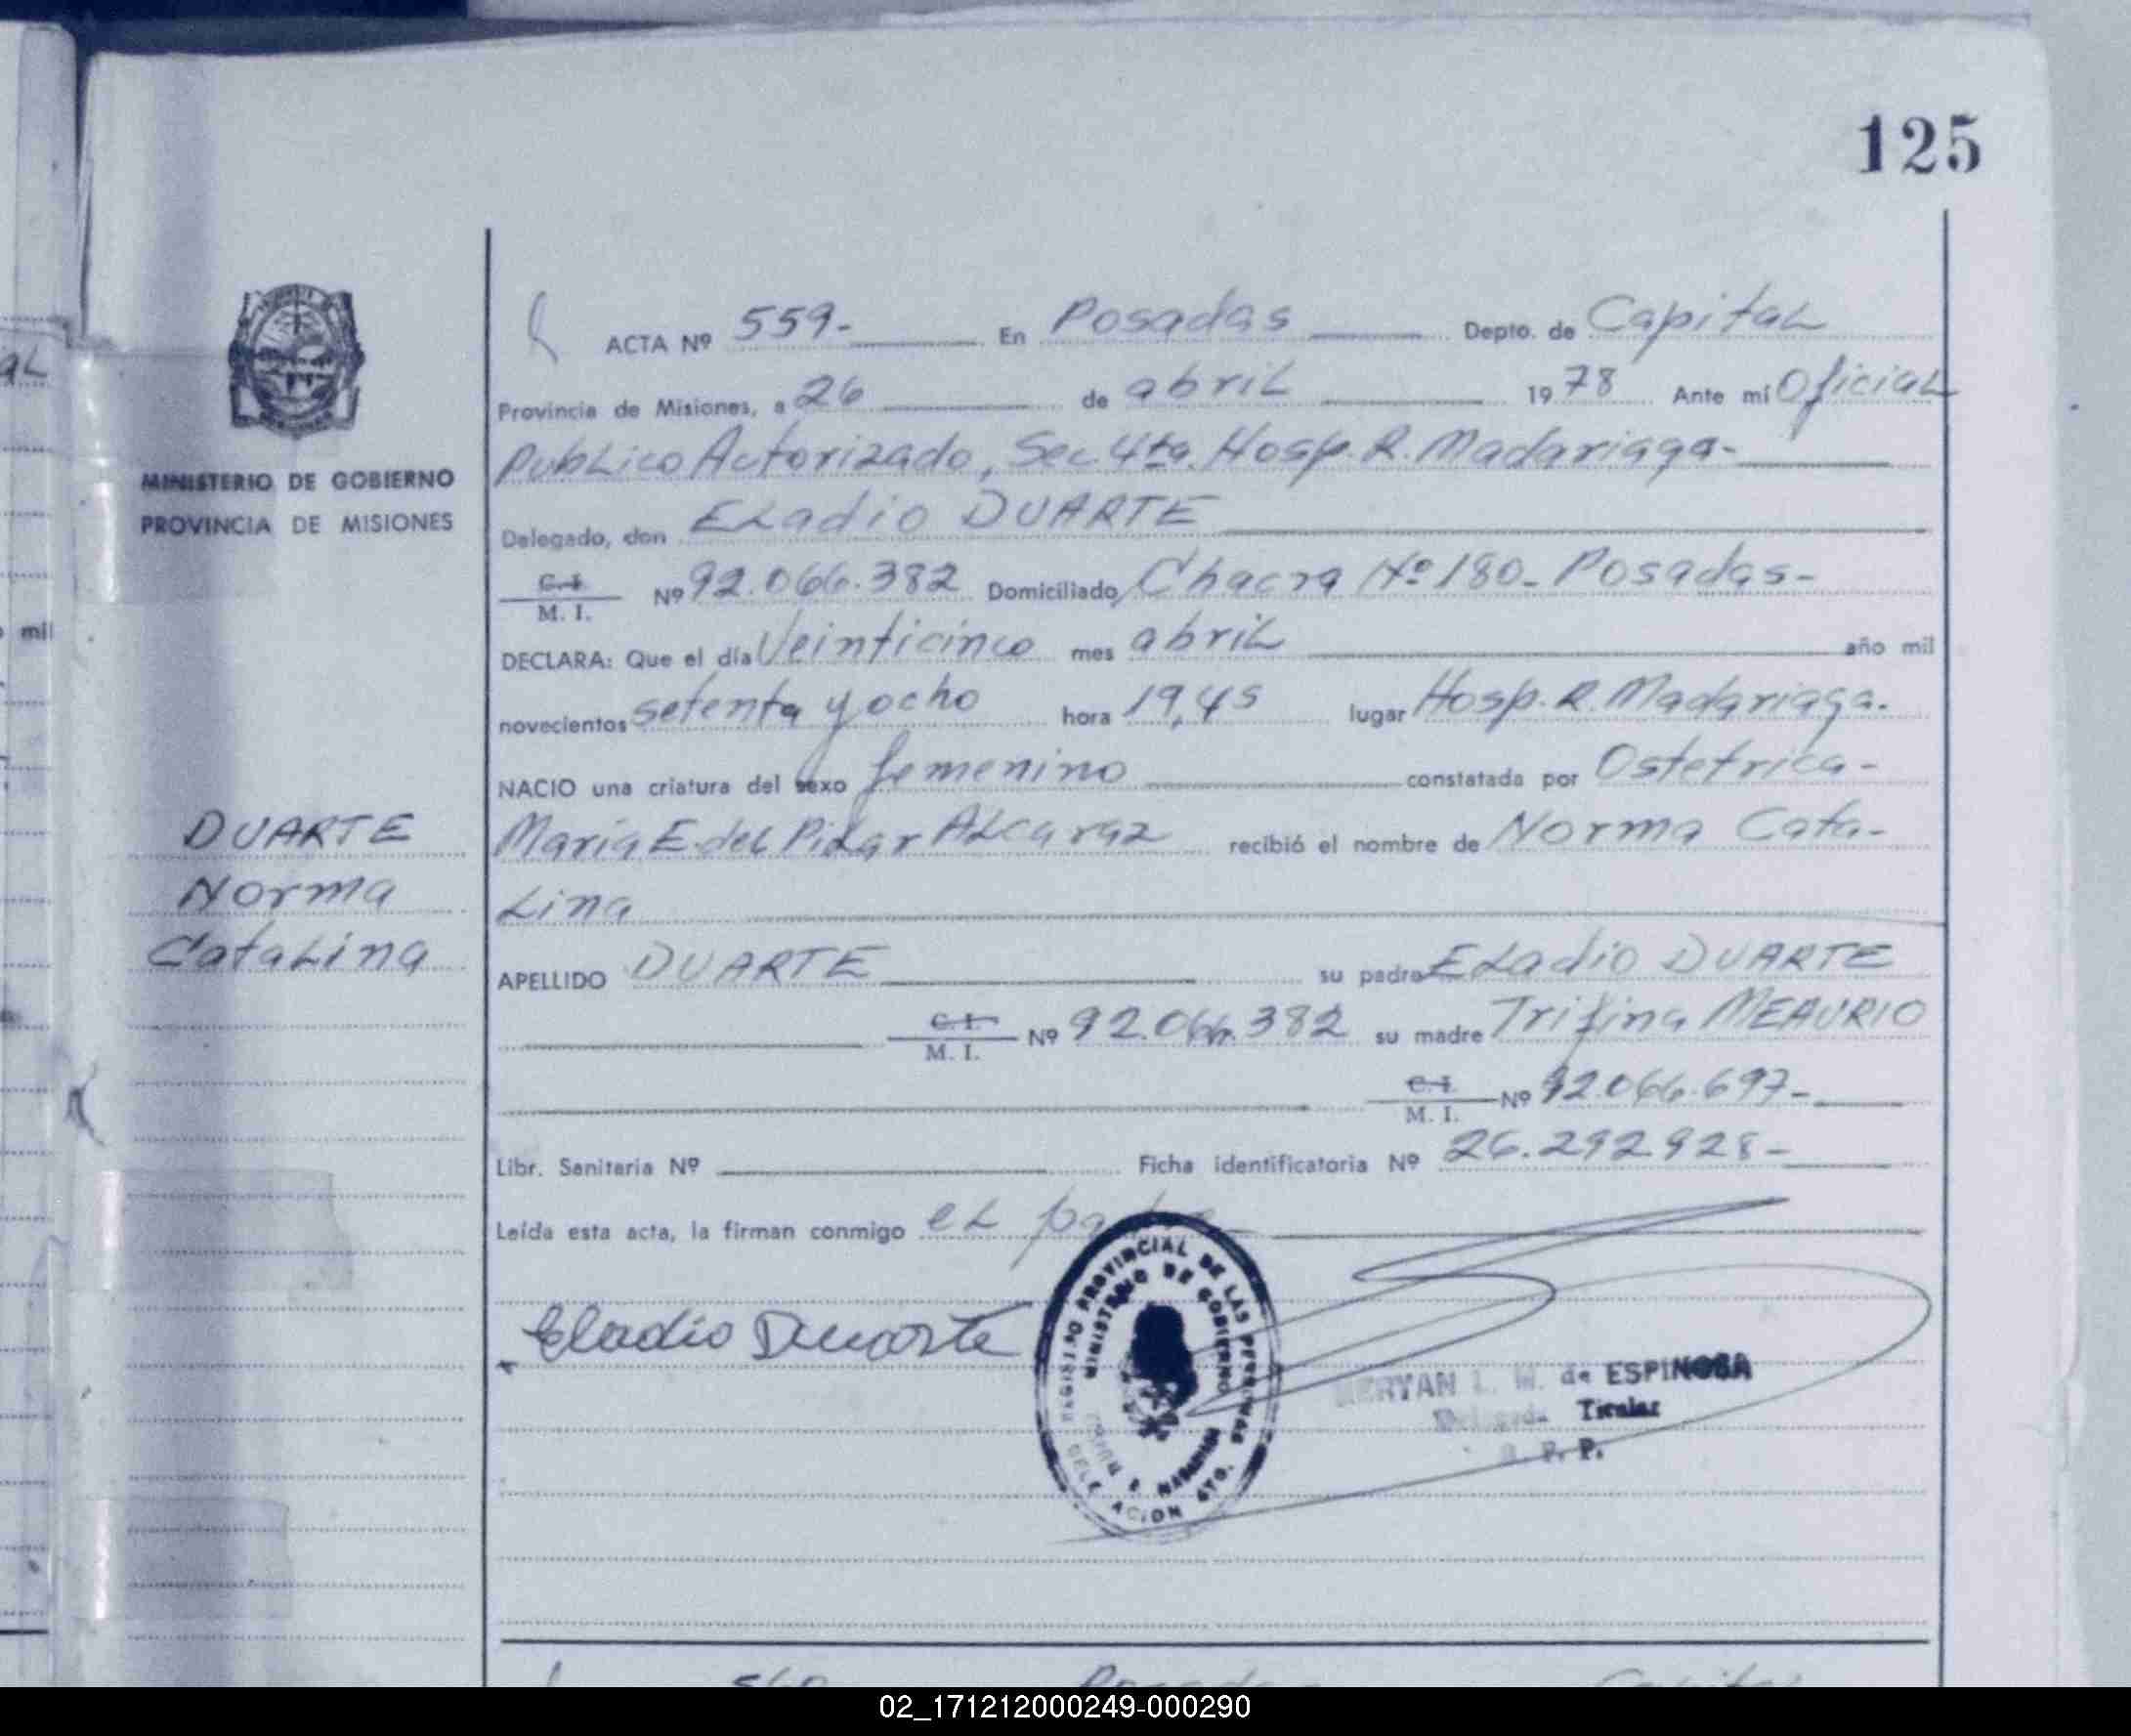 125
ACTA Nº 559- En Posadas Depto. de Capital
Provincia de Misiones, a 26 de abril 1978 Ante mi Oficial
Publico Autorizado, Sec 4ta. Hosp. R. Madariaga-
Delegado, don Eladio DUARTE
C.I. M. I. Nº 92.066.382 Domiciliado Chacra Nº 180- Posadas-
DECLARA: Que el día Veinticinco mes abril año mil
novecientos setenta y ocho hora 19,45 lugar Hosp. R. Madariaga.
NACIO una criatura del sexo femenino constatada por Ostetrica-
Maria E. del Pilar Alcaraz recibió el nombre de Norma Cata-
lina
APELLIDO DUARTE su padre Eladio DUARTE
C.I. M. I. Nº 92.066.382 su madre Trifina MEAURIO
C.I. M. I. Nº 92.066.697-
Libr. Sanitaria Nº Ficha identificatoria Nº 26.292.928-
Leída esta acta, la firman conmigo el padre-
Eladio Duarte
REGISTRO PROVINCIAL DE LAS PERSONAS
MINISTERIO DE GOBIERNO
DELEGACION
de ESPINOSA
Titular
MINISTERIO DE GOBIERNO
PROVINCIA DE MISIONES
DUARTE
Norma
Catalina
al
mil
560 Posadas Capital
02_171212000249-000290